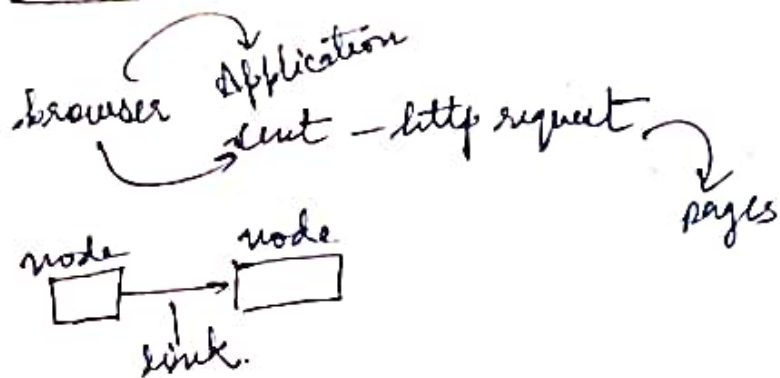 browser Application
sent - http request
pages
node node
link.